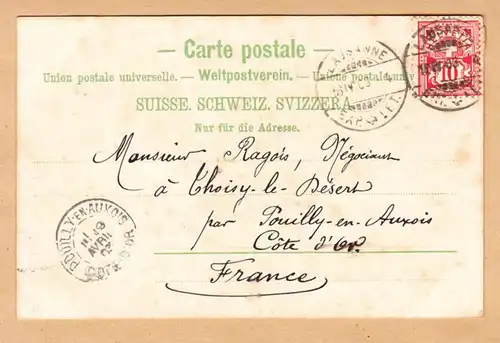 — Carte postale —
Union postale universelle. — Weltpostverein. — Unione postale univ
SUISSE. SCHWEIZ. SVIZZERA.
Nur für die Adresse.
LAUSANNE
EXP. LET.
10
Monsieur Ragois, Négociant
à Choisy-le-Désert
par Pouilly-en-Auxois
Côte d'Or
France
POUILLY-EN-AUXOIS
AVRIL
CÔTE-D'OR